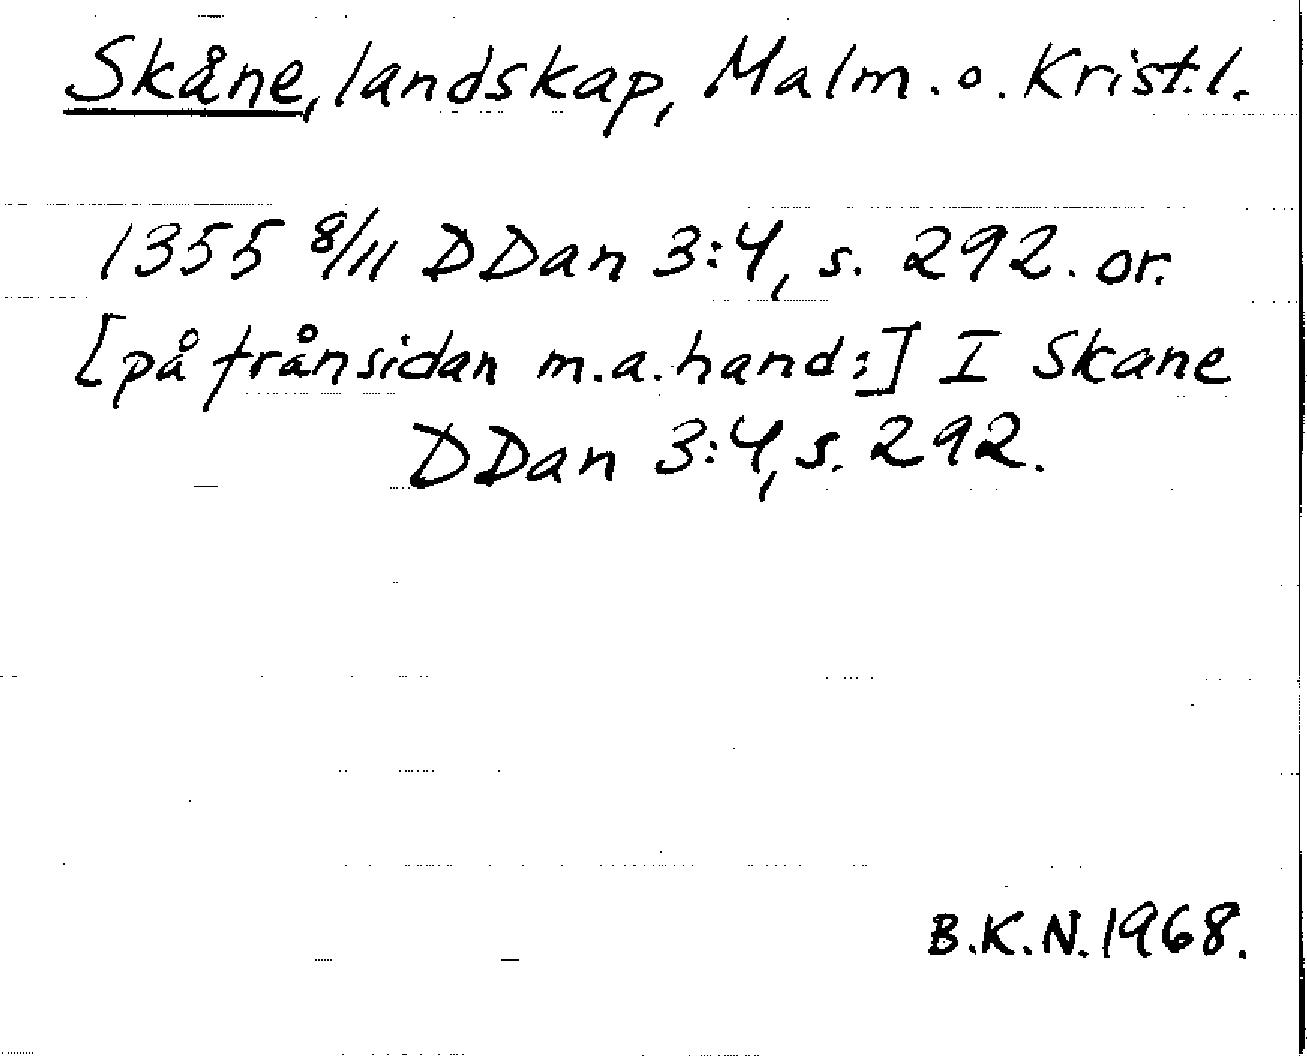 Skåne, landskap, Malm. o. Krist. l.
1355 8/11 DDan 3:4, s. 292. or.
[på frånsidan m.a. hand:] I Skane
DDan 3:4, s. 292.
B.K.N. 1968.